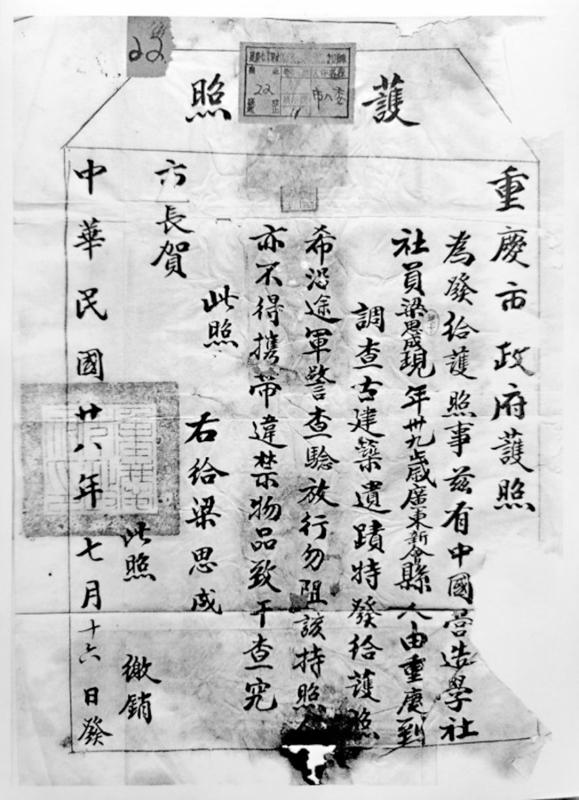 22
護照
22
重慶市政府護照
為發給護照事茲有中國營造學社
社員梁思成現年卅九歲廣東新會縣人由重慶到
調查古建築遺蹟特發給護照
希沿途軍警查驗放行勿阻該持照
亦不得攜帶違禁物品致干查究
此照
右給梁思成
市長賀
此照 繳銷
中華民國廿八年七月十六日發